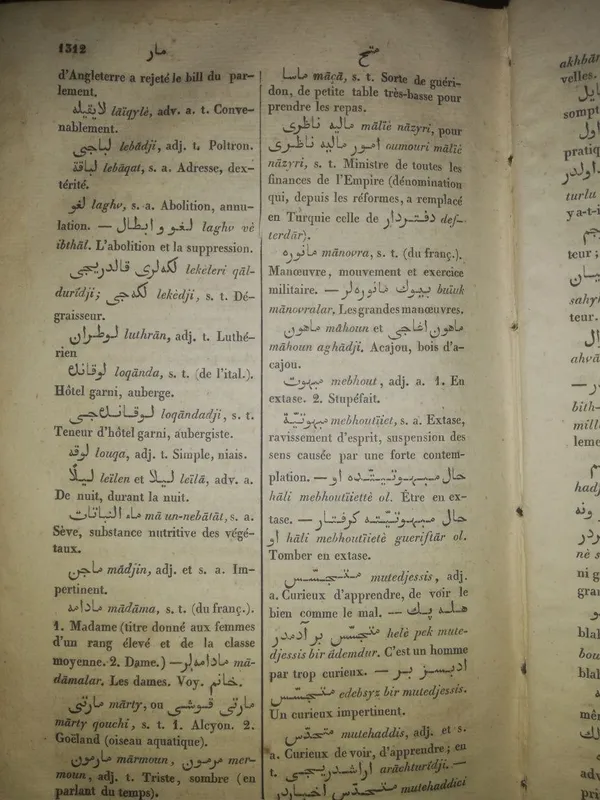 1312
مار
متح
d'Angleterre a rejeté le bill du par-
lement.
لايقيله lāïqylè, adv. a. t. Conve-
nablement.
لباجى lebādji, adj. t. Poltron.
لباقة lebāqat, s. a. Adresse, dex-
térité.
لغو laghv, s. a. Abolition, annu-
lation. — لغو و ابطال laghv vè
ibthāl. L'abolition et la suppression.
لكه لرى قالديريجى lekèleri qāl-
durîdji; لكه جى lekèdji, s. t. Dé-
graisseur.
لوطران luthrān, adj. t. Luthé-
rien
لوقانده loqānda, s. t. (de l'ital.).
Hôtel garni, auberge.
لوقاندهجى loqāndadji, s. t.
Teneur d'hôtel garni, aubergiste.
لوقه louqa, adj. t. Simple, niais.
ليلًا leïlen et ليلا leïlā, adv. a.
De nuit, durant la nuit.
ماء النباتات mā un-nebātāt, s. a.
Sève, substance nutritive des végé-
taux.
ماجن mādjin, adj. et s. a. Im-
pertinent.
مادامه mādāma, s. t. (du franç.).
1. Madame (titre donné aux femmes
d'un rang élevé et de la classe
moyenne. 2. Dame.) — مادامهلر mā-
dāmalar. Les dames. Voy. خانم.
مارتى قوشى ou مارتى mārty,
mārty qouchi, s. t. 1. Alcyon. 2.
Goëland (oiseau aquatique).
مارمون mārmoun, مرمون mer-
moun, adj. t. Triste, sombre (en
parlant du temps).
ماسا māçā, s. t. Sorte de guéri-
don, de petite table très-basse pour
prendre les repas.
ماليه ناظرى māliè nāzyri, pour
امور ماليه ناظرى oumouri māliè
nāzyri, s. t. Ministre de toutes les
finances de l'Empire (dénomination
qui, depuis les réformes, a remplacé
en Turquie celle de دفتردار def-
terdār).
مانوره mānovra, s. t. (du franç.).
Manœuvre, mouvement et exercice
militaire. — بيوك مانورهلر buïuk
mānovralar, Les grandes manœuvres.
ماهون اغاجى et ماهون māhoun
māhoun aghādji. Acajou, bois d'a-
cajou.
مبهوت mebhout, adj. a. 1. En
extase. 2. Stupéfait.
مبهوتيّة mebhoutiïet, s. a. Extase,
ravissement d'esprit, suspension des
sens causée par une forte contem-
plation. — حال مبهوتيتده او
hāli mebhoutiïettè ol. Être en ex-
tase. — حال مبهوتيّته كرفتار
او hāli mebhoutiïetè gueriftār ol.
Tomber en extase.
متجسّس mutedjessis, adj.
a. Curieux d'apprendre, de voir le
bien comme le mal. — هله پك
متجسّس بر آدمدر helè pek mute-
djessis bir ādemdur. C'est un homme
par trop curieux. — ادبسز بر
متجسّس edebsyz bir mutedjessis.
Un curieux impertinent.
متحدّس mutehaddis, adj. et s.
a. Curieux de voir, d'apprendre; en
t. اراشدريجى arāchturîdji. —
متحدّس اخباردر mutehaddici
akhbār
velles.
sompt
pratiq
turlu
y a-t-i
teur;
sahyh
teur.
ahvā
bith-
mill
leme
hadj
nè s
ni g
gran
blab
bou
blab
mên
adv
pri